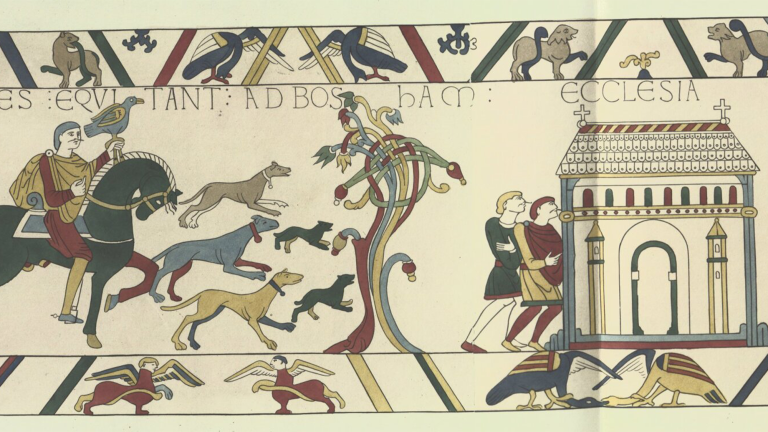 ES : EQVI TANT : AD BOS hAM : ECCLESIA